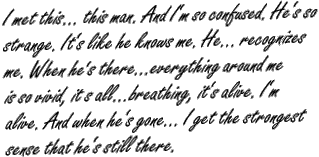 I met this... this man. And I'm so confused. He's so
strange. It's like he knows me. He... recognizes
me. When he's there...everything around me
is so vivid, it s all...breathing, it's alive. I'm
alive. And when he's gone... I get the strongest
sense that he's still there.